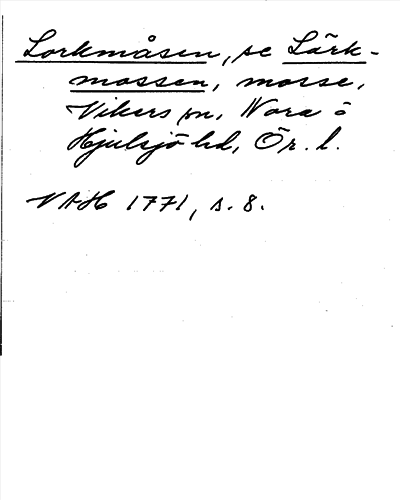 Lorkmåsen, se Lärk-
mossen, mosse,
Vikers sn, Nora o
Hjulsjö hd, Ör. l.
VAH 1771, s. 8.